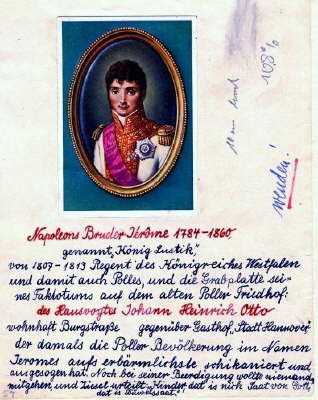 108%
werden!
Napoleons Bruder Jérôme 1784-1860
genannt „König Lustik“,
von 1807-1813 Regent des Königreiches Westfalen
und damit auch Polles, und die Grabplatte sei-
nes Faktotums auf dem alten Poller Friedhof:
des Hausvogts Johann Heinrich Otto
wohnhaft Burgstraße gegenüber Gasthof „Stadt Hannover“
der damals die Poller Bevölkerung im Namen
Jeromes aufs erbärmlichste schikaniert und
ausgesogen hat. Noch bei seiner Beerdigung wollte niemand
mitgehen, und Ziesel urteilt „Kinder, dat is nich Saat von Gott,
dat is Düwelssaat.“